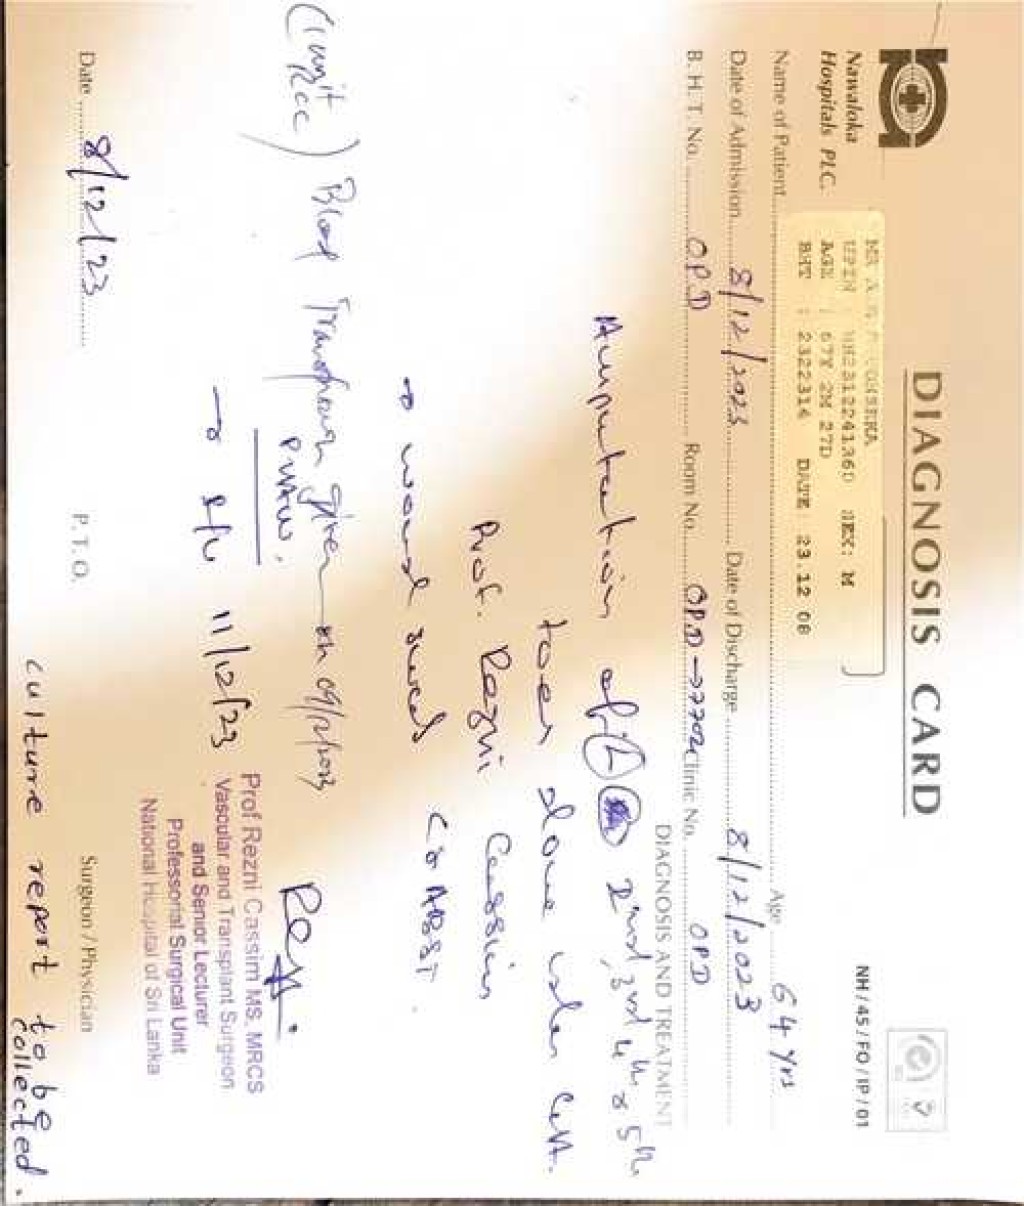 DIAGNOSIS CARD
Nawaloka
Hospitals PLC.
NH / 45 / FO / IP / 01
MR A.M. FONSEKA
UPIN NH2312241360 SEX: M
AGE : 67Y 2M 27D
BHT : 2322314 DATE 23.12 08
Name of Patient Age 64 Yrs
Date of Admission 8/12/2023 Date of Discharge 8/12/2023
B. H. T. No. OPD Room No. OPD → 7702 Clinic No. OPD
DIAGNOSIS AND TREATMENT
Amputation of (L) 2nd, 3rd 4th & 5th
toes done under
Prof. Rezni Cassim
→ wound swab C & ABST
(1 unit RCC) Blood Transfusion given on 09/12/2023
→ R/v 11/12/23
Prof Rezni Cassim MS. MRCS
Vascular and Transplant Surgeon
and Senior Lecturer
Professorial Surgical Unit
National Hospital of Sri Lanka
Date 8/12/23 P. T. O. Surgeon / Physician
culture report to be collected.